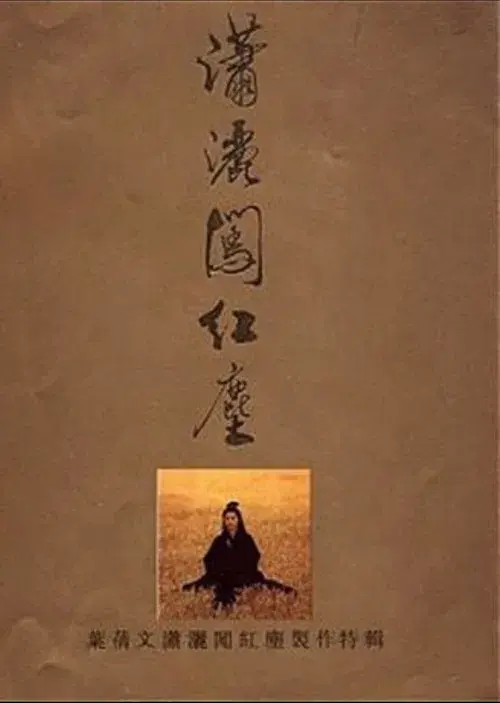 瀟灑闖紅塵
葉蒨文瀟灑闖紅塵製作特輯